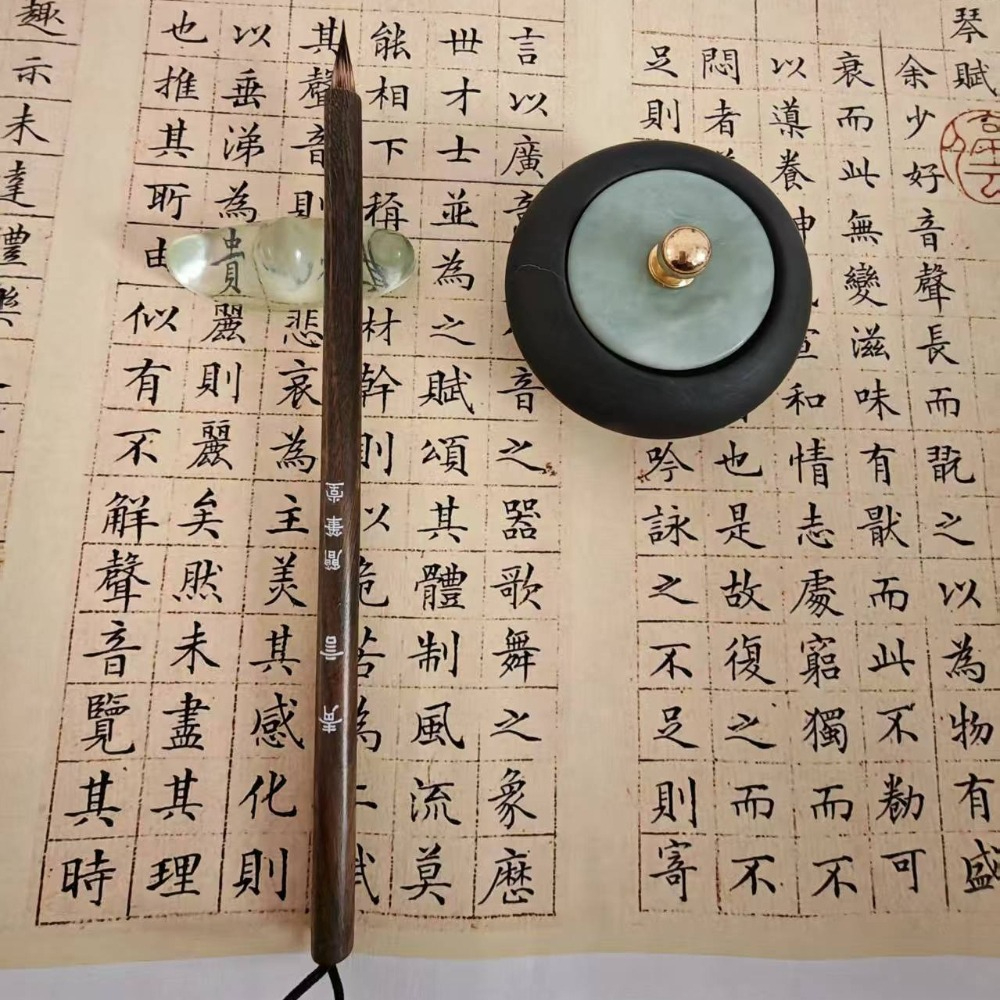 琴賦
余少好音聲長而翫之以為物有盛
衰而此無變滋味有猒而此不勌可
以導養神宣和情志處窮獨而不
悶者也是故復之而不
足則吟詠之不足則寄
言以廣音之器歌舞之象歷
世才士並為之賦頌其體制風流莫
能相下稱材幹則以危苦為上賦
其聲音則悲哀為主美其感化則
以垂涕為貴麗則麗矣然未盡其理
也推其所由似有不解聲音覽其時
趣示未達禮樂
青言
筆堂